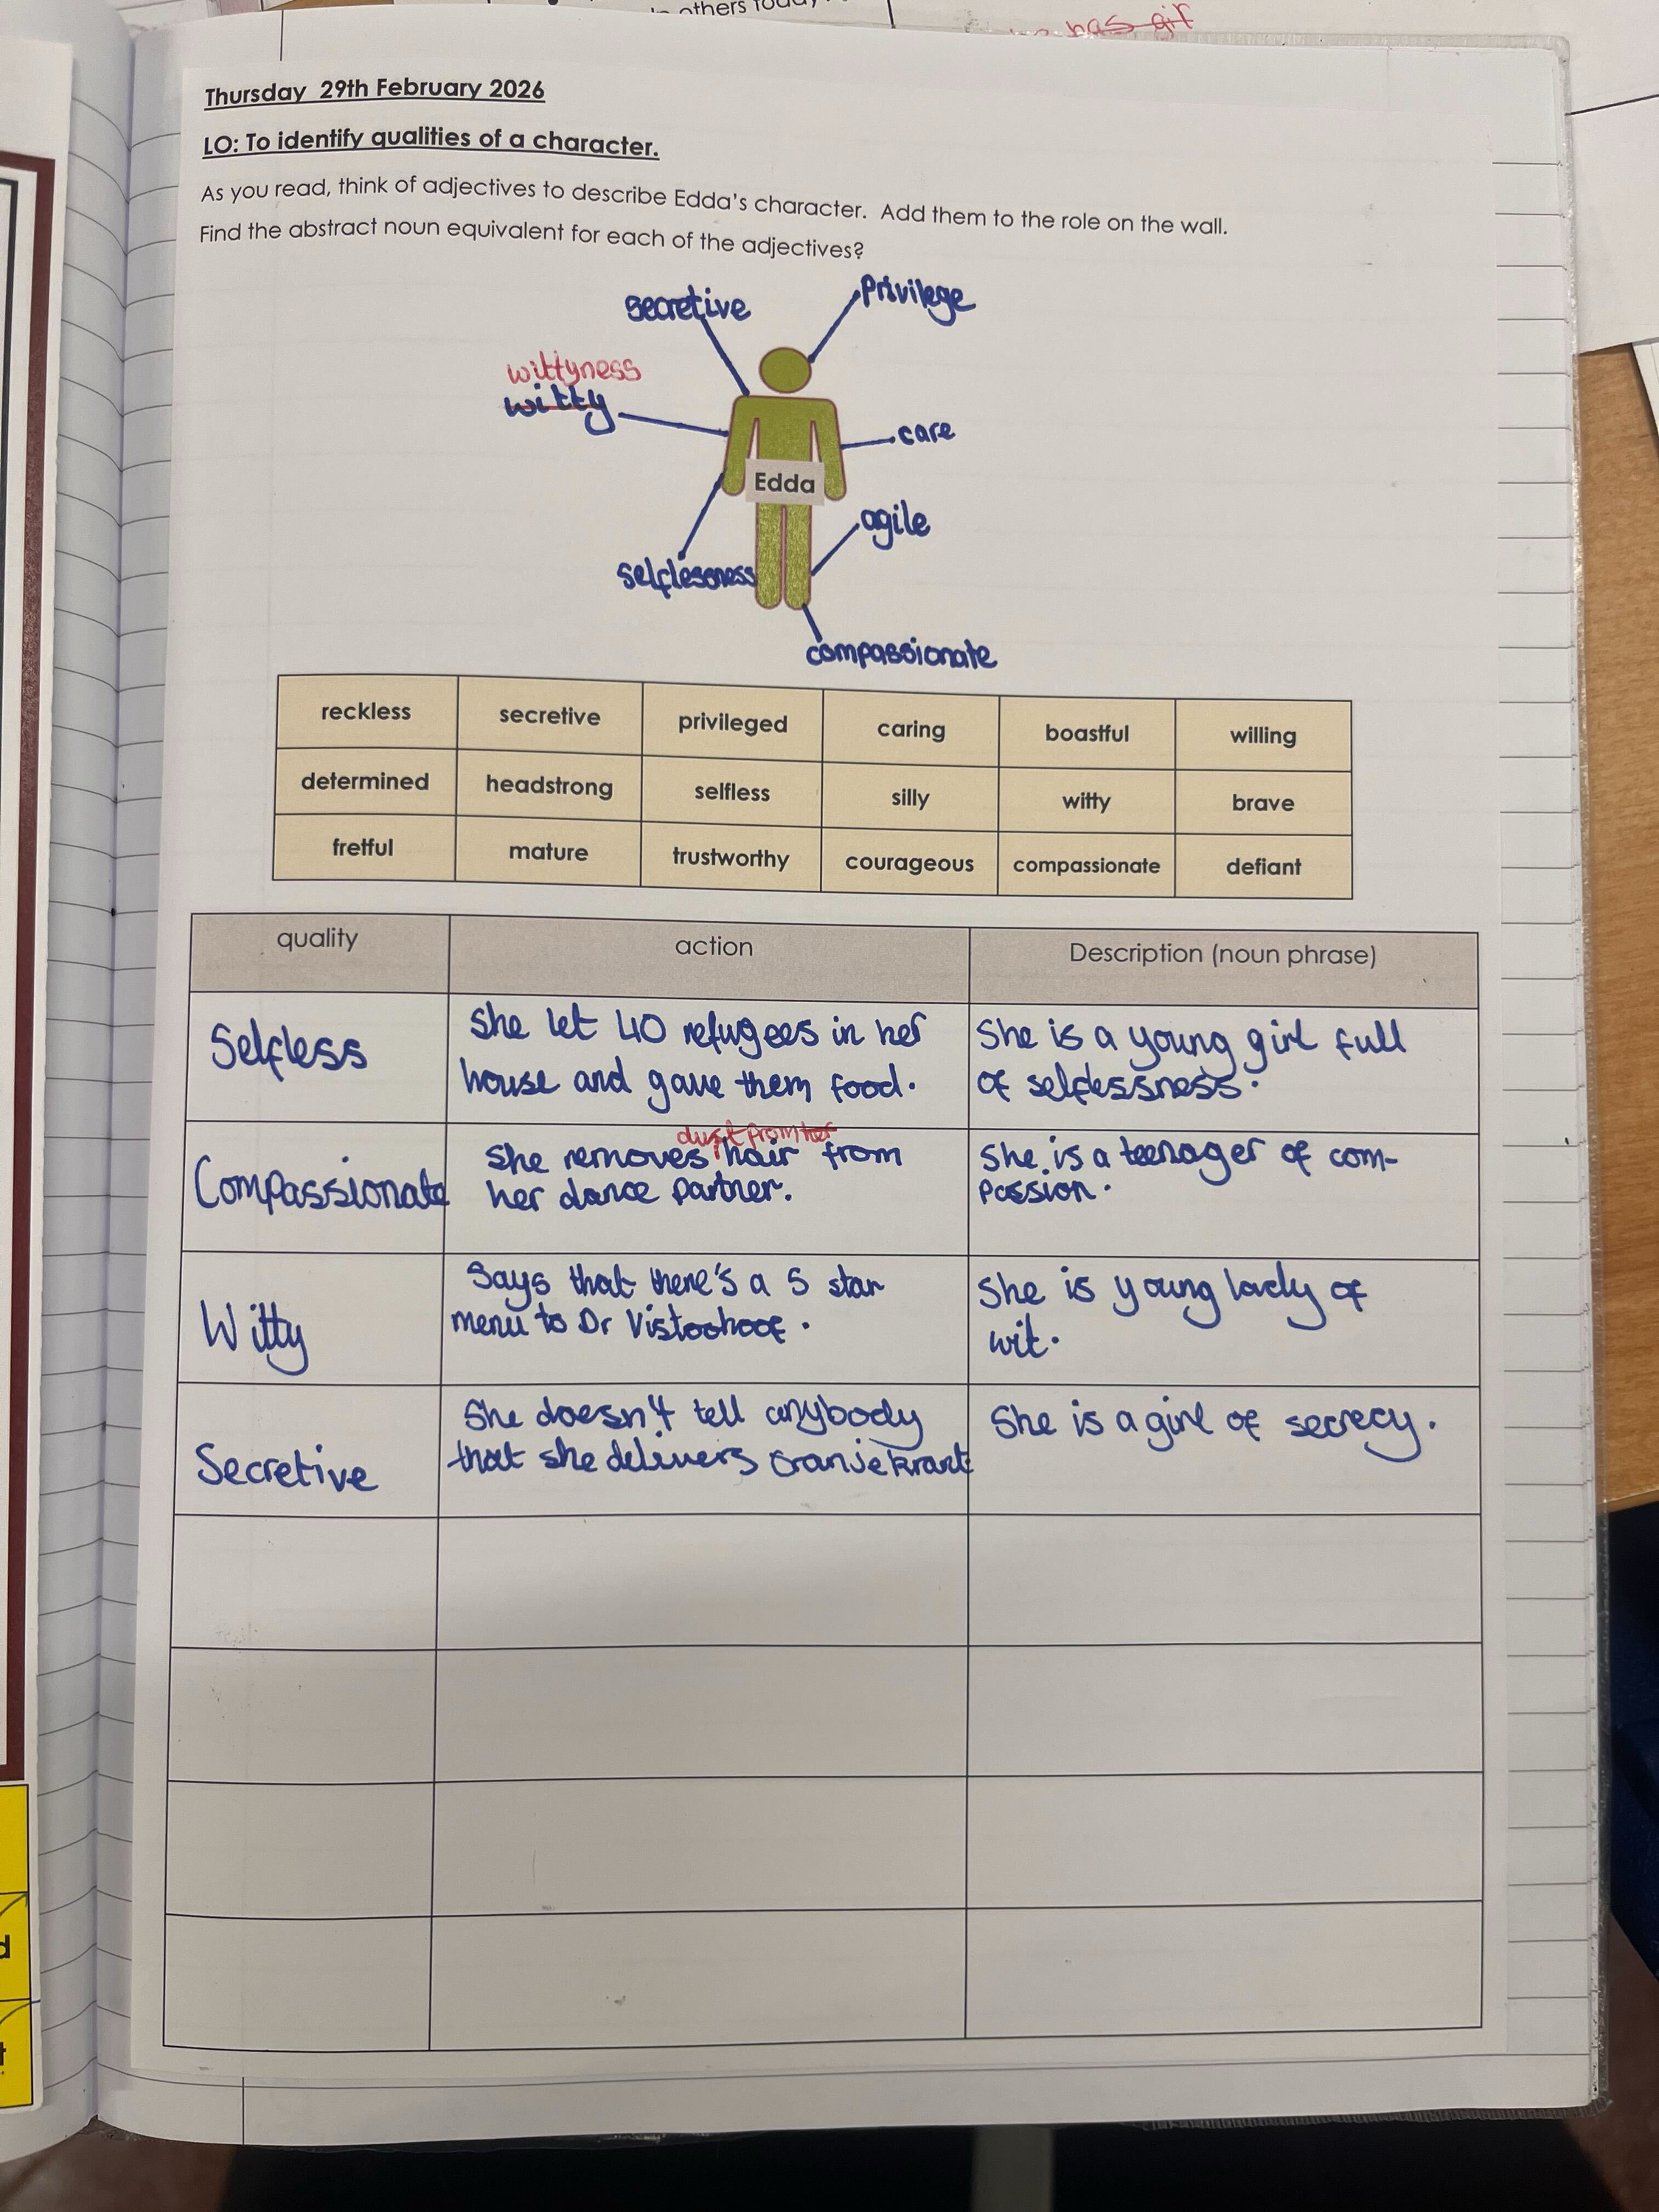 others today
has gir
Thursday 29th February 2026
LO: To identify qualities of a character.
As you read, think of adjectives to describe Edda's character. Add them to the role on the wall.
Find the abstract noun equivalent for each of the adjectives?
secretive
Privilege
wittyness
witty
care
Edda
agile
selflessness
compassionate
reckless secretive privileged caring boastful willing
determined headstrong selfless silly witty brave
fretful mature trustworthy courageous compassionate defiant
quality action Description (noun phrase)
Selfless
She let 40 refugees in her
house and gave them food.
She is a young girl full
of selflessness.
Compassionate
dust from her
She removes hair from
her dance partner.
She is a teenager of com-
passion.
Witty
Says that there's a 5 star
menu to Dr
She is young lovely of
wit.
Secretive
She doesn't tell anybody
that she delivers oranjekrant
She is a girl of secrecy.
d
t